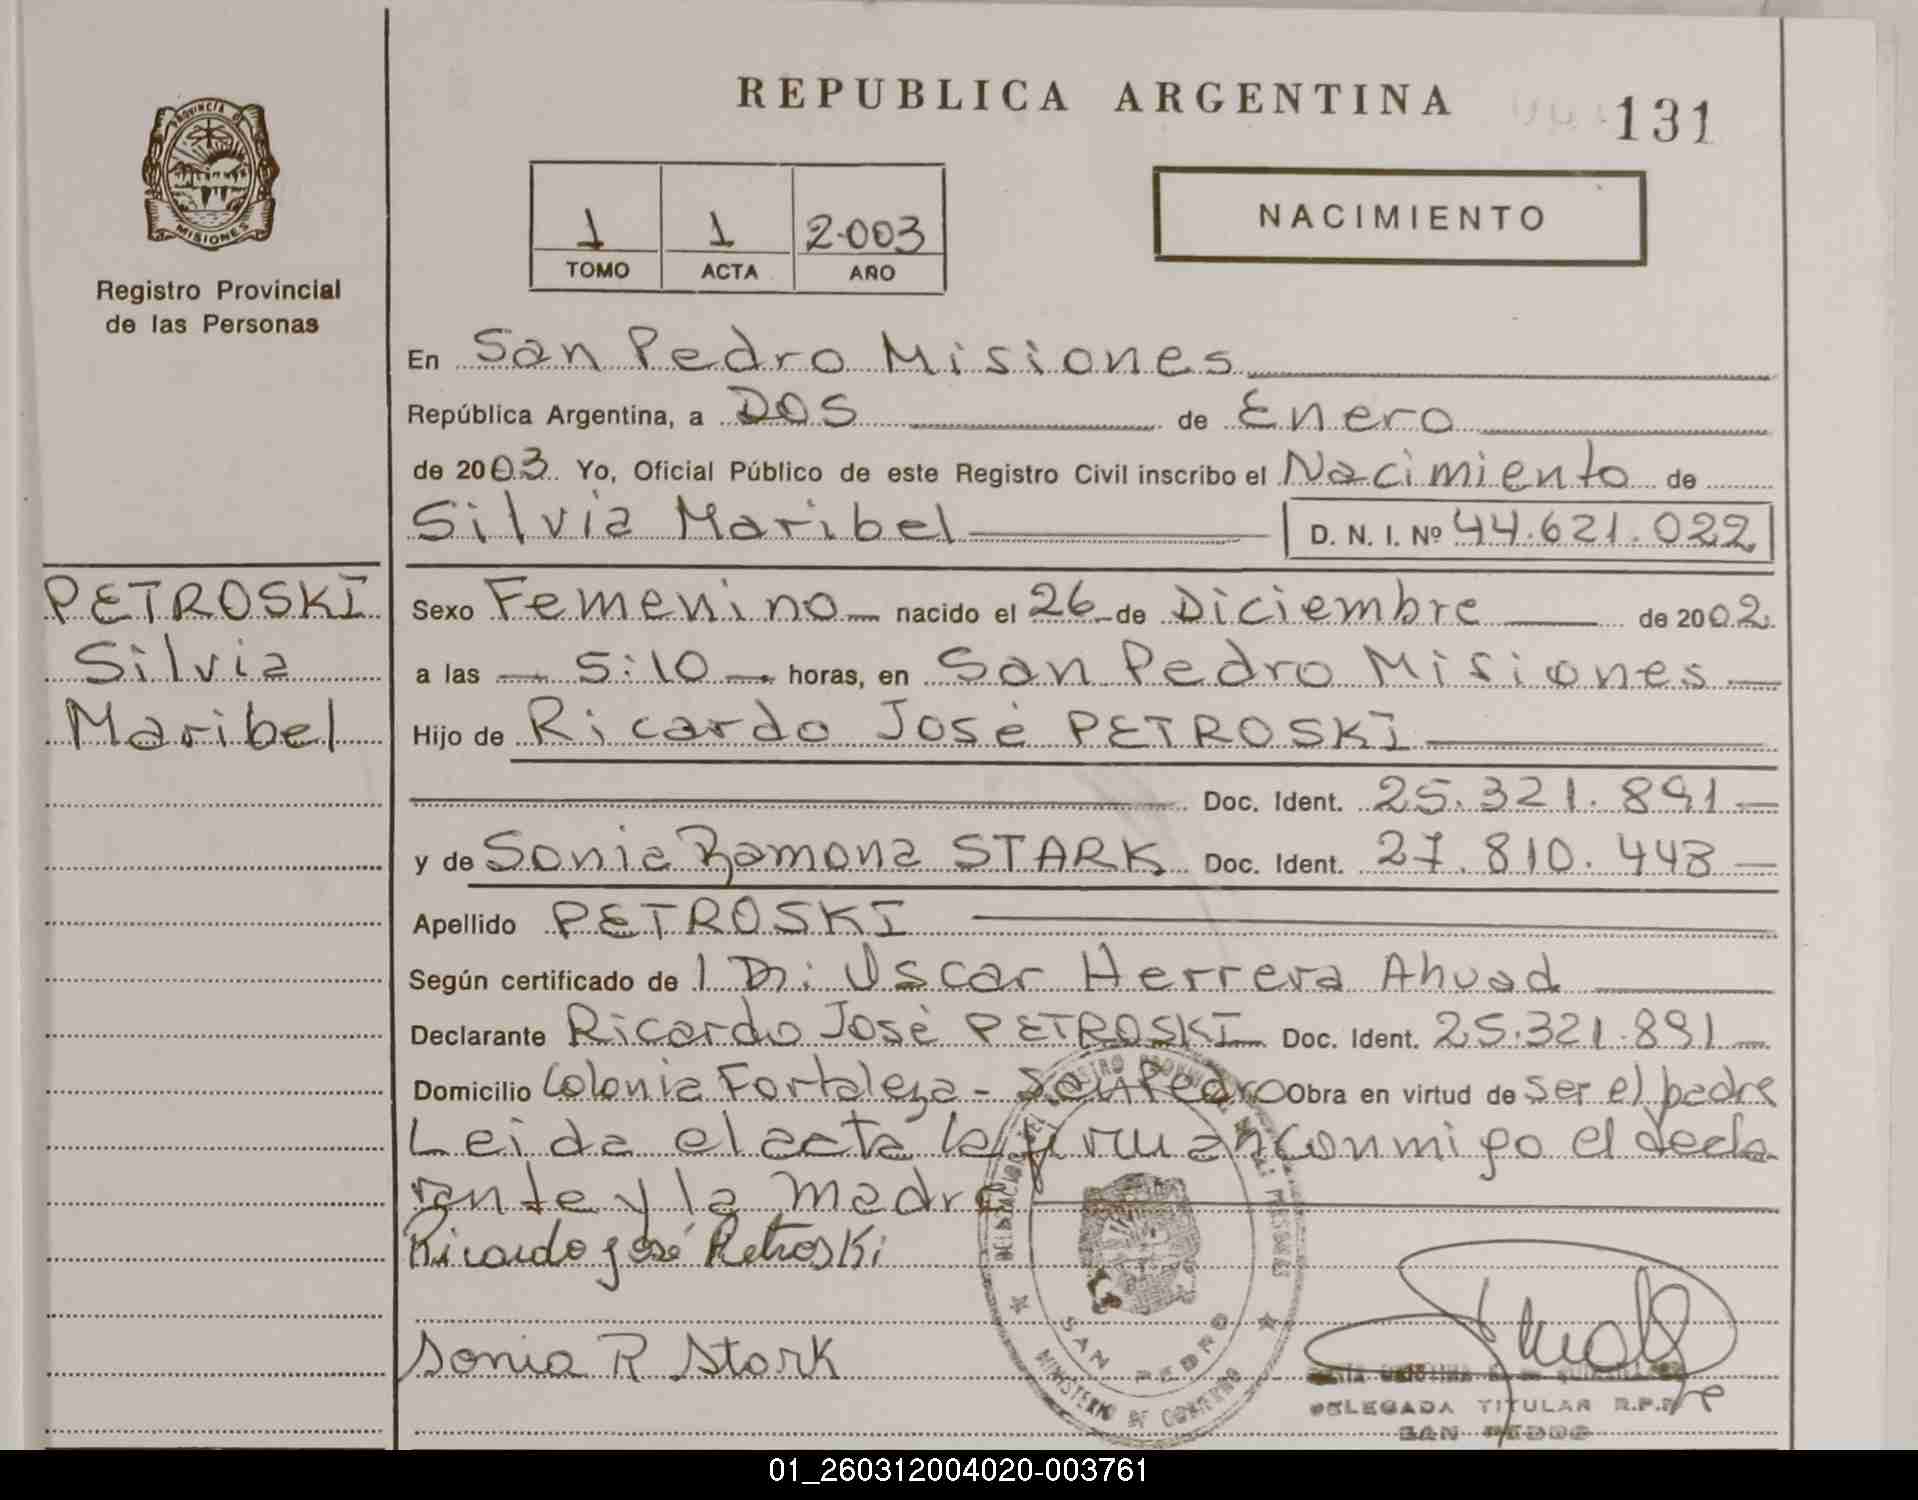 REPUBLICA ARGENTINA
131
PROVINCIA DE
MISIONES
Registro Provincial
de las Personas
1 1 2.003
TOMO ACTA AÑO
NACIMIENTO
En San Pedro Misiones
República Argentina, a DOS de Enero
de 2003. Yo, Oficial Público de este Registro Civil inscribo el Nacimiento de
Silvia Maribel D. N. I. Nº 44.621.022
PETROSKI
Silvia
Maribel
Sexo Femenino nacido el 26 de Diciembre de 2002.
a las 5:10 horas, en San Pedro Misiones
Hijo de Ricardo José PETROSKI
Doc. Ident. 25.321.891
y de Sonia Ramona STARK Doc. Ident. 27.810.448
Apellido PETROSKI
Según certificado de l Dr: Oscar Herrera Ahuad
Declarante Ricardo José PETROSKI Doc. Ident. 25.321.891
Domicilio Colonia Fortaleza - San Pedro Obra en virtud de Ser el padre
Leida el acta la firman conmigo el decla
rante y la madre
Ricardo José Petroski
Sonia R Stark
SAN PEDRO
MINISTERIO DE GOBIERNO
DELEGADA TITULAR R.P.P.
SAN PEDRO
01_260312004020-003761